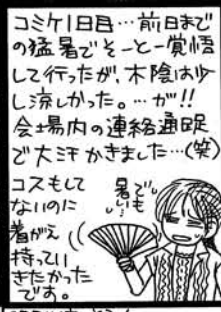 コミケ1日目…前日まで
の猛暑でそーとー覚悟
して行ったが、木陰は少
し涼しかった。…が!!
会場内の連絡通路
で大汗かきました…(笑)
コスもして
ないのに
着がえ
持ってい
きたかった
です。
暑いでも